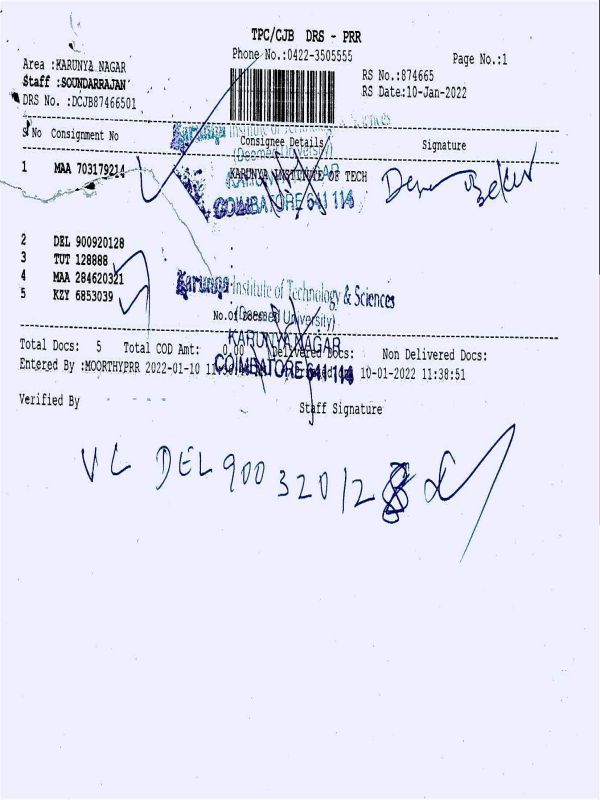 TPC/CJB DRS - PRR
Phone No.:0422-3505555
Page No.:1
Area :KARUNYA NAGAR
RS No.:874665
Staff :SOUNDARRAJAN
RS Date:10-Jan-2022
DRS No. :DCJB87466501
Karunya Institute of Technology & Sciences
S No Consignment No Consignee Details Signature
(Deemed University)
1 MAA 703179214 KARUNYA INSTITUTE OF TECH
KARUNYA NAGAR
COIMBATORE 641 114
2 DEL 900920128
3 TUT 128888
4 MAA 284620321
5 KZY 6853039
Karunya Institute of Technology & Sciences
(Deemed University)
No.of Docs: 5
KARUNYA NAGAR
COIMBATORE 641 114
Total Docs: 5 Total COD Amt: 0.00 Delivered Docs: Non Delivered Docs:
Entered By :MOORTHYPRR 2022-01-10 10-01-2022 11:38:51
Verified By Staff Signature
VL DEL 900320128